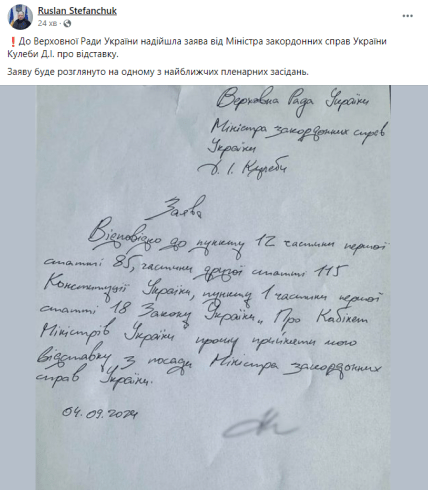 Ruslan Stefanchuk
24 хв ·
❗До Верховної Ради України надійшла заява від Міністра закордонних справ України
Кулеби Д.І. про відставку.
Заяву буде розглянуто на одному з найближчих пленарних засідань.
Верховна Рада України
Міністра закордонних справ
України
Д. І. Кулеби
Заява
Відповідно до пункту 12 частини першої
статті 85, частини другої статті 115
Конституції України, пункту 1 частини першої
статті 18 Закону України „Про Кабінет
Міністрів України прошу прийняти мою
відставку з посади Міністра закордонних
справ України.
04.09.2024